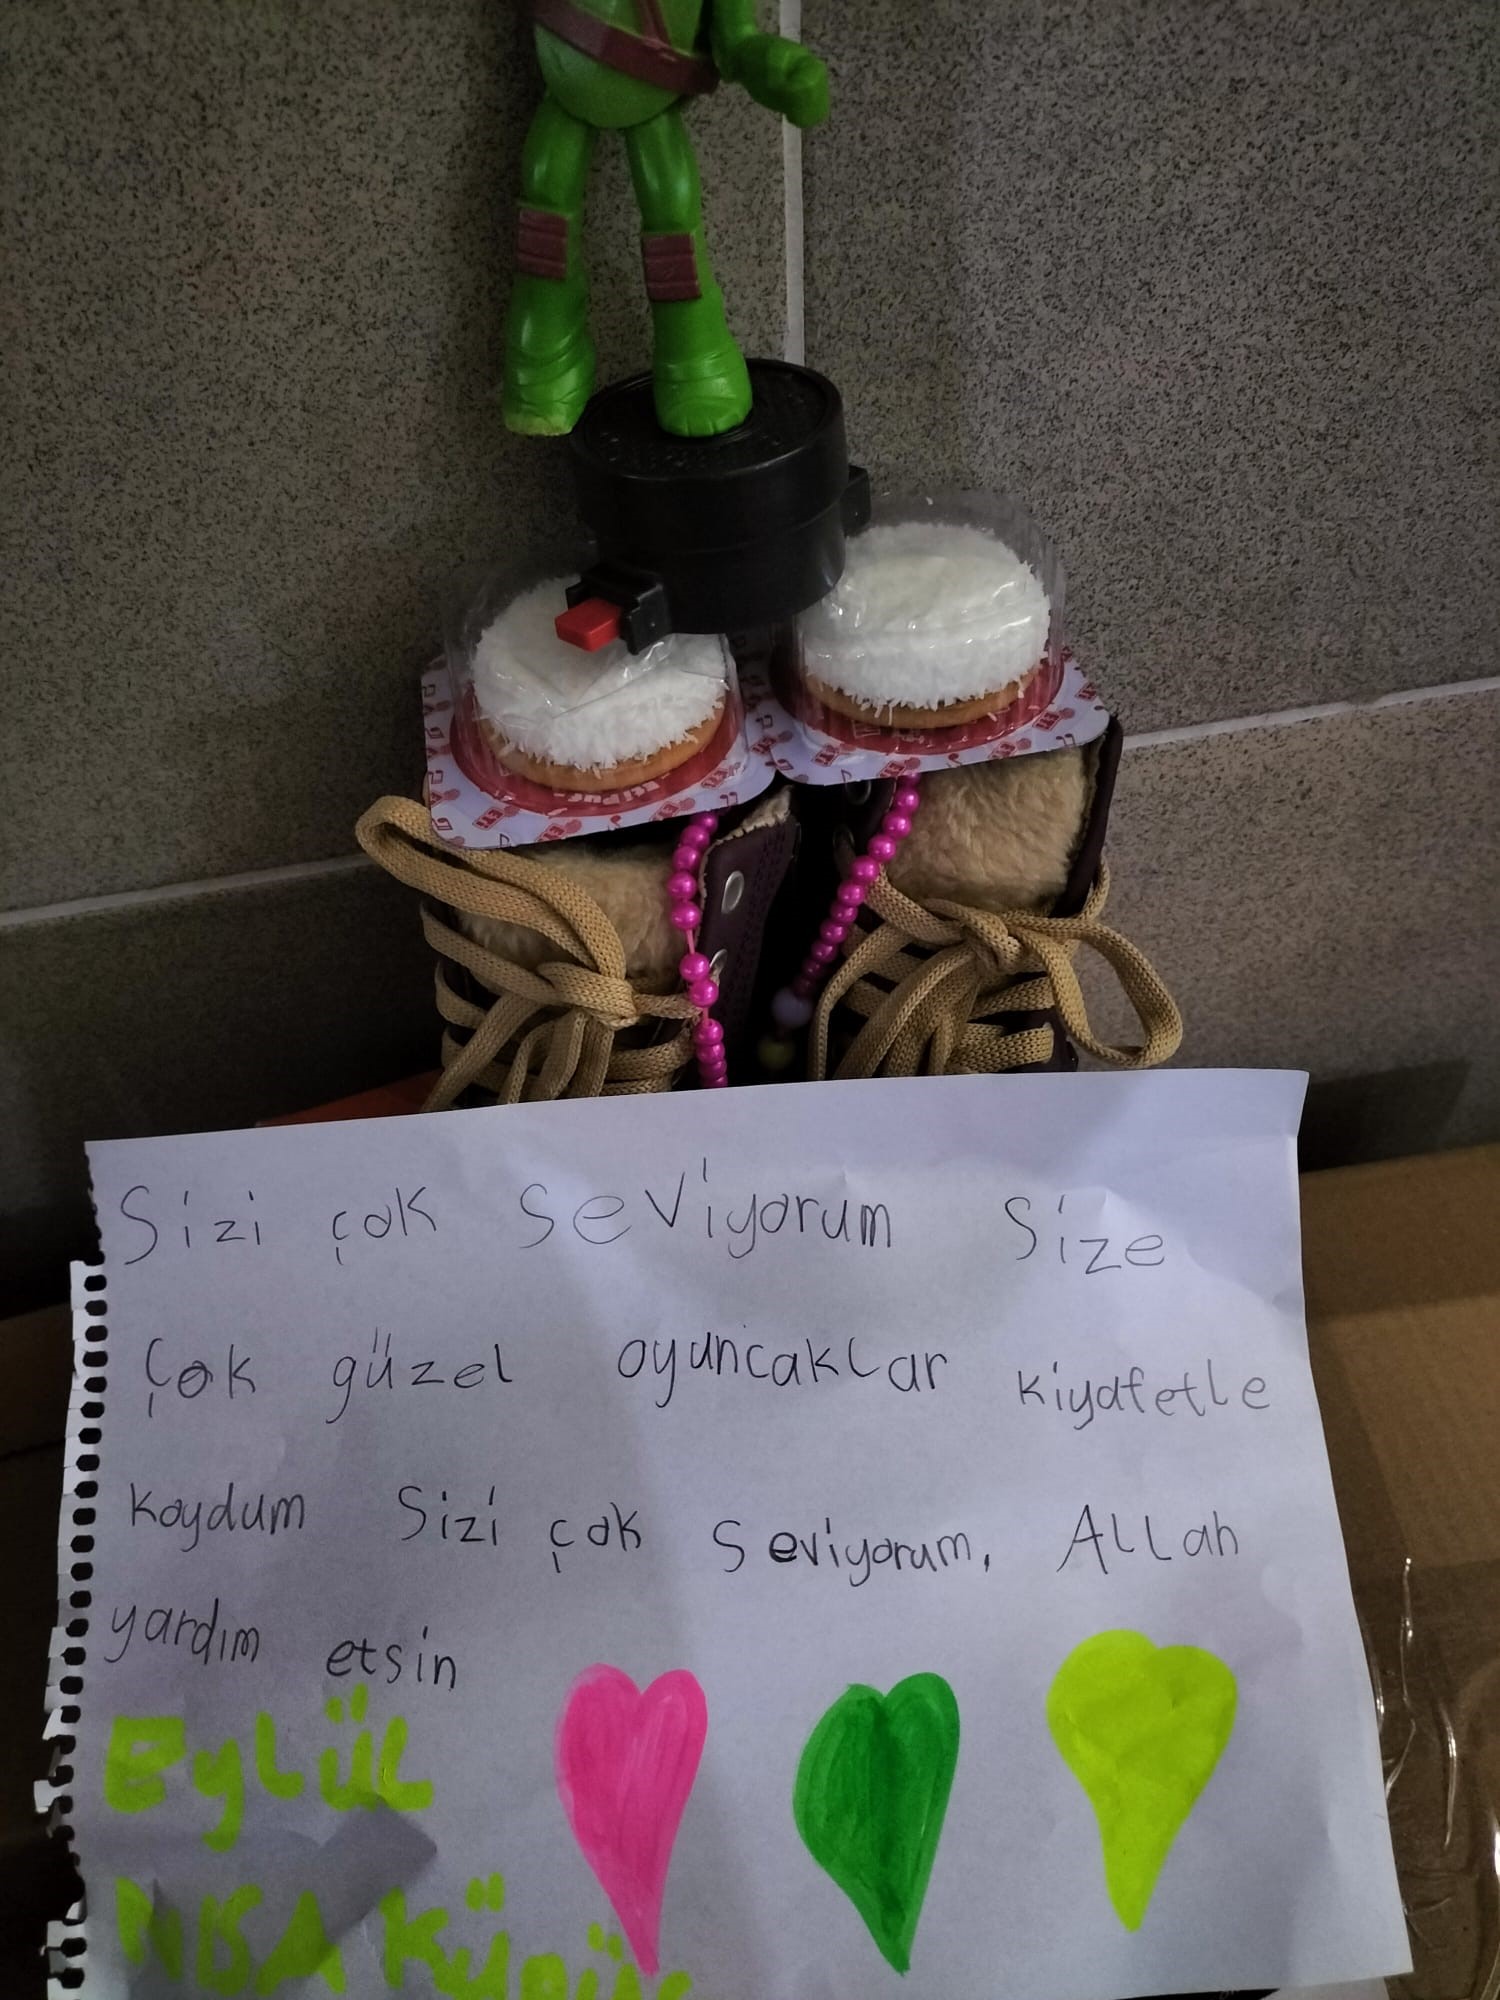 Eti Puf
Sizi çok seviyorum Size
Çok güzel oyuncaklar kiyafetle
koydum Sizi çok Seviyorum, Allah
yardım etsin
Eylül